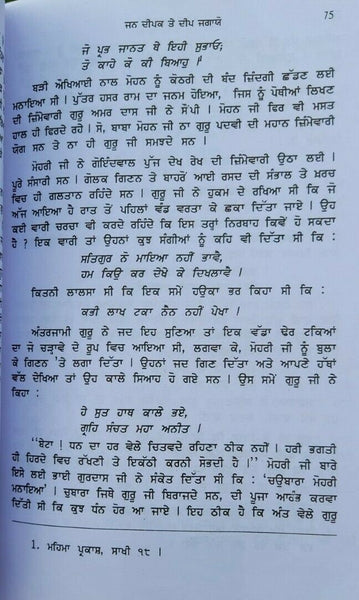 ਜਨ ਦੀਪਕ ਤੇ ਦੀਪ ਜਗਾਯੋ
75
ਜੋ ਪ੍ਰਭ ਜਾਨਤ ਥੇ ਇਹੀ ਸੁਭਾਓ;
ਤੋ ਕਾਹੇ ਕੋ ਕੀ ਬਿਆਹੁ।
ਬੜੀ ਔਖਿਆਈ ਨਾਲ ਮੋਹਨ ਨੂੰ ਕੋਠਰੀ ਦੀ ਬੰਦ ਜ਼ਿੰਦਗੀ ਛੱਡਣ ਲਈ
ਮਨਾਇਆ ਸੀ। ਪੁੱਤਰ ਹਸਰ ਰਾਮ ਦਾ ਜਨਮ ਹੋਇਆ, ਜਿਸ ਨੂੰ ਪੋਥੀਆਂ ਲਿਖਣ
ਦੀ ਜ਼ਿੰਮੇਵਾਰੀ ਗੁਰੂ ਅਮਰ ਦਾਸ ਜੀ ਨੇ ਸੌਂਪੀ। ਮੋਹਨ ਜੀ ਫਿਰ ਵੀ ਮਸਤ
ਹਾਲ ਹੀ ਫਿਰਦੇ ਰਹੇ। ਸੋ, ਬਾਬਾ ਮੋਹਨ ਜੀ ਨਾ ਗੁਰੂ ਪਦਵੀ ਦੀ ਮਹਾਨ ਜ਼ਿੰਮੇਵਾਰੀ
ਯੋਗ ਸਨ ਤੇ ਨਾ ਹੀ ਗੁਰੂ ਜੀ ਸਮਝਦੇ ਸਨ।
ਮੋਹਰੀ ਜੀ ਨੇ ਗੋਇੰਦਵਾਲ ਪੁੱਜ ਦੇਖ ਰੇਖ ਦੀ ਜ਼ਿੰਮੇਵਾਰੀ ਉਠਾ ਲਈ।
ਪੂਰੇ ਸੰਸਾਰੀ ਸਨ। ਗੋਲਕ ਗਿਣਨ ਤੇ ਬਾਹਰੋਂ ਆਈ ਰਸਦ ਦੀ ਸੰਭਾਲ ਤੇ ਖ਼ਰਚ
ਵਿਚ ਹੀ ਗਲਤਾਨ ਰਹਿੰਦੇ ਸਨ। ਗੁਰੂ ਜੀ ਨੇ ਹੁਕਮ ਦੇ ਰਖਿਆ ਸੀ ਕਿ ਜੋ
ਅੱਜ ਆਇਆ ਹੈ ਰਾਤ ਤੋਂ ਪਹਿਲਾਂ ਵੰਡ ਵਰਤਾ ਕੇ ਛਕਾ ਦਿੱਤਾ ਜਾਏ। ਉਹ
ਕਈ ਵਾਰੀ ਚਰਚਾ ਵੀ ਕਰਦੇ ਰਹਿੰਦੇ ਕਿ ਇਸ ਤਰ੍ਹਾਂ ਨਿਰਬਾਹ ਕਿਵੇਂ ਹੋ ਸਕਦਾ
ਹੈ? ਇਕ ਵਾਰੀ ਤਾਂ ਉਹਨਾਂ ਕੁਝ ਸੰਗੀਆਂ ਨੂੰ ਕਹਿ ਵੀ ਦਿੱਤਾ ਸੀ ਕਿ:
ਸਤਿਗੁਰ ਨੋ ਮਾਇਆ ਨਹੀਂ ਭਾਵੈ,
ਹਮ ਕਿਉਂ ਕਰ ਦੇਖੇ ਕੇ ਦਿਖਲਾਵੈ।
ਕਿਤਨੀ ਲਾਲਸਾ ਸੀ ਕਿ ਇਕ ਸਮੇਂ ਹਉਕਾ ਭਰ ਕਿਹਾ ਸੀ ਕਿ:
ਕਭੀ ਲਾਖ ਟਕਾ ਨੈਨ ਨਹੀਂ ਪੇਖਾ।
ਅੰਤਰਜਾਮੀ ਗੁਰੂ ਨੇ ਜਦ ਇਹ ਸੁਣਿਆ ਤਾਂ ਇਕ ਵੱਡਾ ਢੇਰ ਟਕਿਆਂ
ਦਾ ਜੋ ਚੜ੍ਹਾਵੇ ਦੇ ਰੂਪ ਵਿਚ ਆਇਆ ਸੀ, ਲਗਵਾ ਕੇ, ਮੋਹਰੀ ਜੀ ਨੂੰ ਬੁਲਾ
ਕੇ ਗਿਣਨ 'ਤੇ ਲਗਾ ਦਿੱਤਾ। ਉਹਨਾਂ ਜਦ ਗਿਣ ਦਿੱਤਾ ਅਤੇ ਆਪਣੇ ਹੱਥਾਂ
ਵੱਲ ਦੇਖਿਆ ਤਾਂ ਉਹ ਕਾਲੇ ਸਿਆਹ ਹੋ ਗਏ ਸਨ। ਉਸ ਸਮੇਂ ਗੁਰੂ ਜੀ ਨੇ
ਕਿਹਾ:
ਹੇ ਸੁਤ ਹਾਥ ਕਾਲੇ ਭਏ,
ਗ੍ਰਹਿ ਸੰਚਤ ਮਹਾ ਅਨੀਤ।
"ਬੇਟਾ! ਧਨ ਦਾ ਹਰ ਵੇਲੇ ਚਿਤਵਦੇ ਰਹਿਣਾ ਠੀਕ ਨਹੀਂ। ਹਰੀ ਭਗਤੀ
ਹੀ ਹਿਰਦੇ ਵਿਚ ਰੱਖਣੀ ਤੇ ਇਕੱਠੀ ਕਰਨੀ ਸੋਭਦੀ ਹੈ।" ਮੋਹਰੀ ਜੀ ਬਾਰੇ
ਇਸੇ ਲਈ ਭਾਈ ਗੁਰਦਾਸ ਜੀ ਨੇ ਸੰਕੇਤ ਦਿੱਤਾ ਸੀ ਕਿ: 'ਚਉਬਾਰਾ ਮੋਹਰੀ
ਮਨਾਇਆ'। ਚੁਬਾਰਾ ਜਿਥੇ ਗੁਰੂ ਜੀ ਬਿਰਾਜਦੇ ਸਨ, ਦੀ ਪੂਜਾ ਆਰੰਭ ਕਰਵਾ
ਦਿੱਤੀ ਸੀ ਕਿ ਕੁਝ ਧੰਨ ਹੋਰ ਆ ਜਾਏ। ਇਹ ਠੀਕ ਹੈ ਕਿ ਅੰਤ ਵੇਲੇ ਗੁਰੂ
1. ਮਹਿਮਾ ਪ੍ਰਕਾਸ਼, ਸਾਖੀ ੧੮।